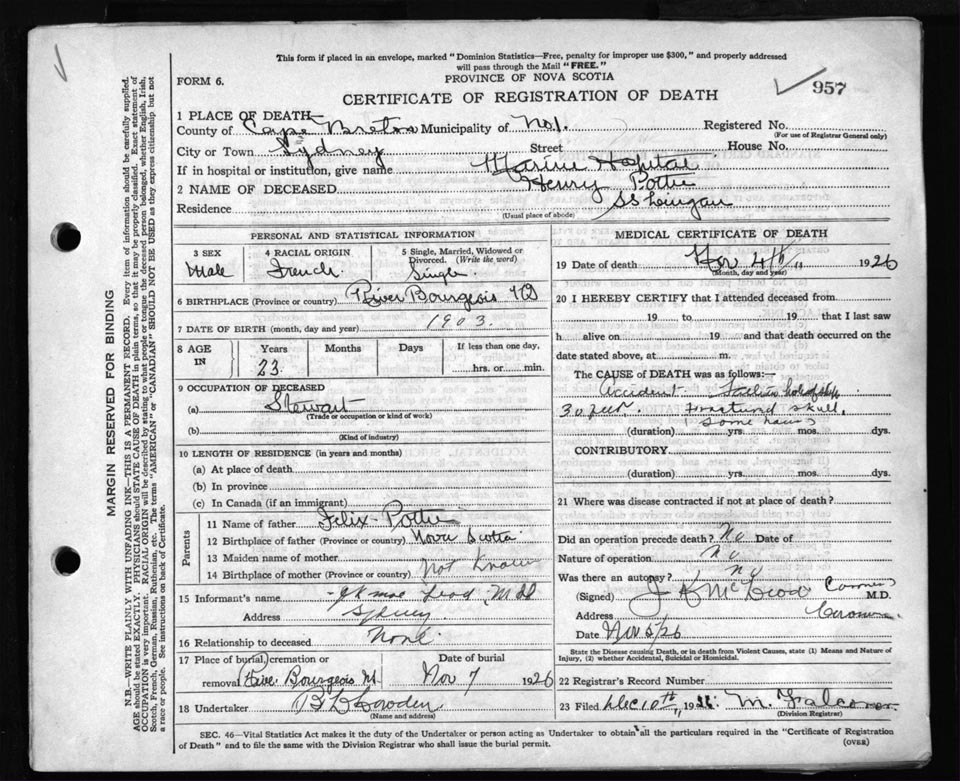 This form if placed in an envelope, marked "Dominion Statistics—Free, penalty for improper use $300," and properly addressed
will pass through the Mail "FREE."
FORM 6.
PROVINCE OF NOVA SCOTIA
957
CERTIFICATE OF REGISTRATION OF DEATH
1 PLACE OF DEATH—
County of Cape Breton Municipality of No 1. Registered No.
(For use of Registrar General only)
City or Town Sydney Street House No.
If in hospital or institution, give name Marine Hospital
2 NAME OF DECEASED Henry Pottie
Residence SS Lingan
(Usual place of abode)
PERSONAL AND STATISTICAL INFORMATION
3 SEX
Male
4 RACIAL ORIGIN
French
5 Single, Married, Widowed or Divorced. (Write the word)
Single
6 BIRTHPLACE (Province or country) River Bourgeois
7 DATE OF BIRTH (month, day and year) 1903.
8 AGE IN
Years Months Days If less than one day,
23 hrs. or min.
9 OCCUPATION OF DECEASED
(a) Stewart
(Trade or occupation or kind of work)
(b)
(Kind of industry)
10 LENGTH OF RESIDENCE (in years and months)
(a) At place of death
(b) In province
(c) In Canada (if an immigrant)
Parents
11 Name of father Felix Pottie
12 Birthplace of father (Province or country) Nova Scotia
13 Maiden name of mother
14 Birthplace of mother (Province or country) Not Known
15 Informant's name J K MacLeod MD
Address Sydney
16 Relationship to deceased None
17 Place of burial, cremation or Date of burial
removal River Bourgeois Nov 7 1926
18 Undertaker
(Name and address)
MEDICAL CERTIFICATE OF DEATH
19 Date of death Nov 4th 1926
(Month, day and year)
20 I HEREBY CERTIFY that I attended deceased from
19 to 19 that I last saw
h alive on 19 and that death occurred on
date stated above, at m.
The CAUSE of DEATH was as follows:—
Accident. hold of ship
30 feet. Fractured skull.
some hours
(duration) yrs. mos. dys.
CONTRIBUTORY
(duration) yrs. mos. dys.
21 Where was disease contracted if not at place of death?
Did an operation precede death? No Date of
Nature of operation No
Was there an autopsy? No
(Signed) J K McLeod Coroner M.D.
Address
Date Nov 5/26
State the Disease causing Death, or in death from Violent Causes, state (1) Means and Nature of Injury, (2) whether Accidental, Suicidal or Homicidal.
22 Registrar's Record Number
23 Filed Dec 10th 1926 M.
(Division Registrar)
SEC. 46—Vital Statistics Act makes it the duty of the Undertaker or person acting as Undertaker to obtain all the particulars required in the "Certificate of Registration
of Death" and to file the same with the Division Registrar who shall issue the burial permit.
(OVER)
MARGIN RESERVED FOR BINDING
N.B.—WRITE PLAINLY WITH UNFADING INK—THIS IS A PERMANENT RECORD. Every item of information should be carefully supplied.
AGE should be stated EXACTLY. PHYSICIANS should STATE CAUSE OF DEATH in plain terms, so that it may be properly classified. Exact statement of
OCCUPATION is very important. RACIAL ORIGIN will be described by stating to what people or tongue the deceased person belonged, whether English, Irish,
Scotch, French, German, Russian, Ruthenian, etc. The terms "AMERICAN" or "CANADIAN" SHOULD NOT BE USED as they express citizenship but not
a race or people. See instructions on back of Certificate.